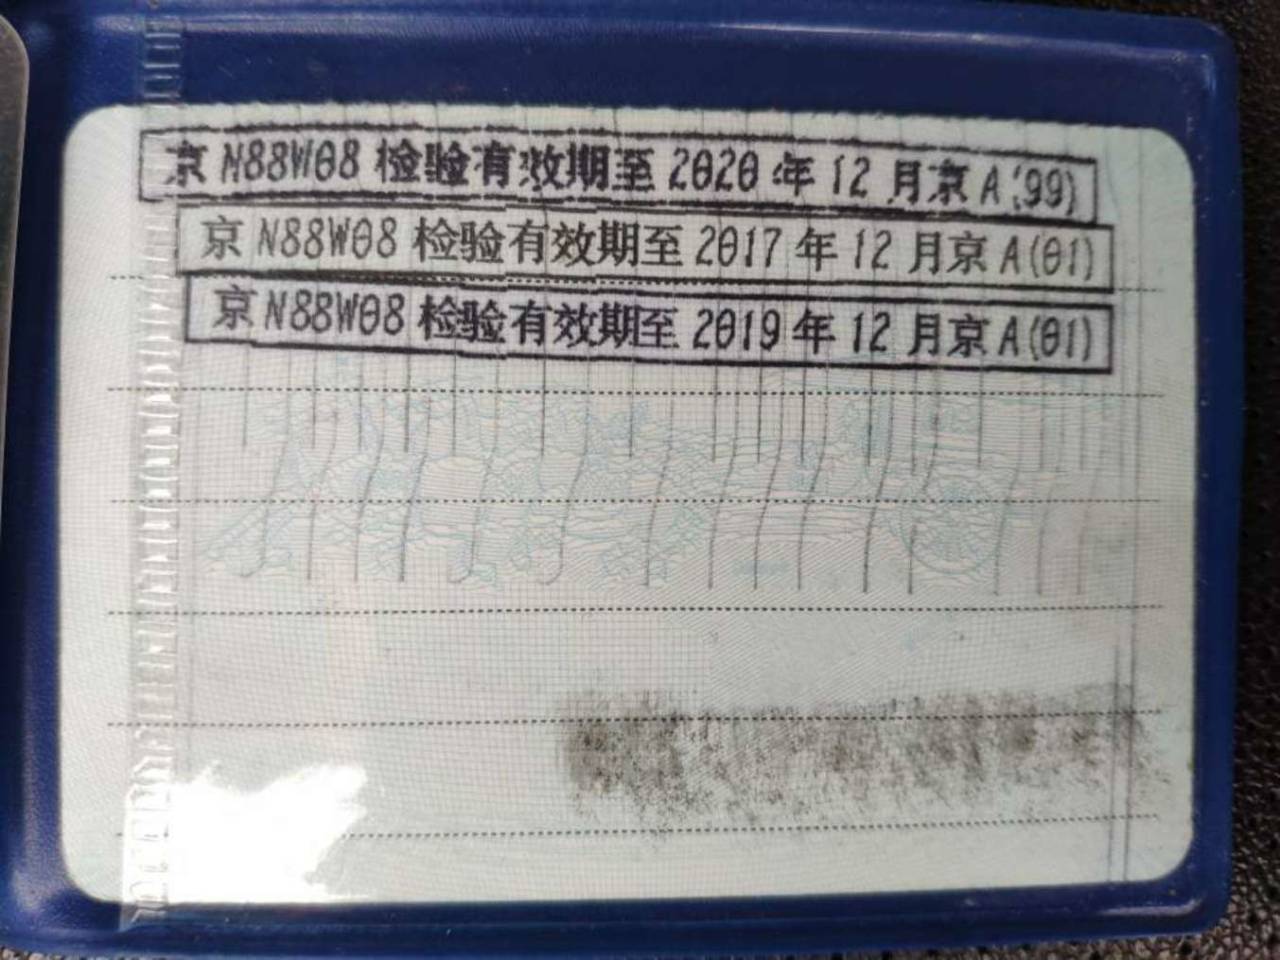 京N88W08检验有效期至2020年12月京A(99)
京N88W08检验有效期至2017年12月京A(01)
京N88W08检验有效期至2019年12月京A(01)